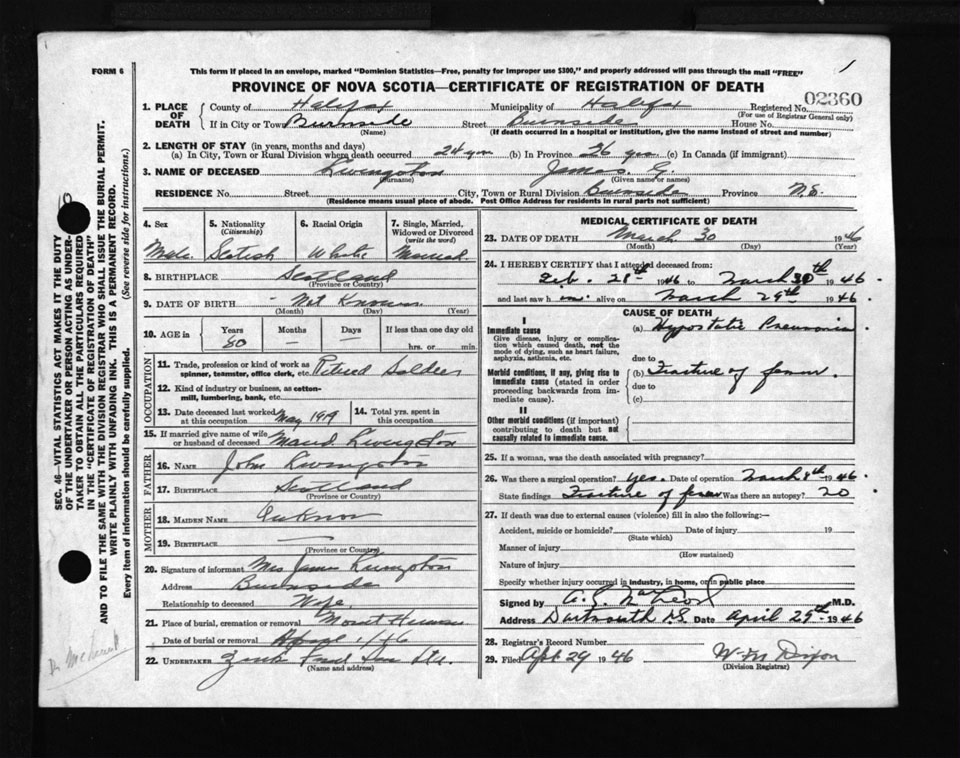 FORM 6
This form if placed in an envelope, marked "Dominion Statistics—Free, penalty for improper use $300," and properly addressed will pass through the mail "FREE"
1
PROVINCE OF NOVA SCOTIA—CERTIFICATE OF REGISTRATION OF DEATH
02360
1. PLACE OF DEATH County of Halifax Municipality of Halifax Registered No.
(For use of Registrar General only)
If in City or Town Burnside Street Burnside House No.
(Name) (If death occurred in a hospital or institution, give the name instead of street and number)
2. LENGTH OF STAY (in years, months and days)
(a) In City, Town or Rural Division where death occurred 24 yrs (b) In Province 26 yrs (c) In Canada (if immigrant)
3. NAME OF DECEASED Livingston James G.
(Surname) (Given name or names)
RESIDENCE No. Street City, Town or Rural Division Burnside Province N.S.
(Residence means usual place of abode. Post Office Address for residents in rural parts not sufficient)
4. Sex 5. Nationality (Citizenship) 6. Racial Origin 7. Single, Married, Widowed or Divorced (write the word)
Male Scotish White Married
8. BIRTHPLACE Scotland
(Province or Country)
9. DATE OF BIRTH - Not Known
(Month) (Day) (Year)
10. AGE in Years Months Days If less than one day old
80 — — hrs. or min.
OCCUPATION
11. Trade, profession or kind of work as spinner, teamster, office clerk, etc. Retired Soldier
12. Kind of industry or business, as cotton-mill, lumbering, bank, etc.
13. Date deceased last worked at this occupation May 1919 14. Total yrs. spent in this occupation
15. If married give name of wife or husband of deceased Maud Livingston
FATHER
16. NAME John Livingston
17. BIRTHPLACE Scotland
(Province or Country)
MOTHER
18. MAIDEN NAME
19. BIRTHPLACE —
(Province or Country)
20. Signature of informant Mrs James Livingston
Address Burnside
Relationship to deceased Wife
21. Place of burial, cremation or removal Mount Herman
Date of burial or removal April 1/46
22. UNDERTAKER
(Name and address)
MEDICAL CERTIFICATE OF DEATH
23. DATE OF DEATH March 30 1946
(Month) (Day) (Year)
24. I HEREBY CERTIFY that I attended deceased from:
Feb. 28th 1946 to March 30th 1946
and last saw h im alive on March 29th 1946.
CAUSE OF DEATH
I
Immediate cause (a) Hypostatic Pneumonia
Give disease, injury or complication which caused death, not the mode of dying, such as heart failure, asphyxia, asthenia, etc.
due to
Morbid conditions, if any, giving rise to immediate cause (stated in order proceeding backwards from immediate cause).
(b) Fracture of femur.
due to
(c)
II
Other morbid conditions (if important) contributing to death but not causally related to immediate cause.
25. If a woman, was the death associated with pregnancy?
26. Was there a surgical operation? yes. Date of operation March 8th 1946
State findings Fracture of femur Was there an autopsy?
27. If death was due to external causes (violence) fill in also the following:—
Accident, suicide or homicide? Date of injury 19
(State which)
Manner of injury
(How sustained)
Nature of injury
Specify whether injury occurred in industry, in home, or in public place
Signed by M.D.
Address Dartmouth N.S. Date April 29th 1946
28. Registrar's Record Number
29. Filed Apl 29 1946 W. M. Dixon
(Division Registrar)
SEC. 46—VITAL STATISTICS ACT MAKES IT THE DUTY
OF THE UNDERTAKER OR PERSON ACTING AS UNDER-
TAKER TO OBTAIN ALL THE PARTICULARS REQUIRED
IN THE "CERTIFICATE OF REGISTRATION OF DEATH"
AND TO FILE THE SAME WITH THE DIVISION REGISTRAR WHO SHALL ISSUE THE BURIAL PERMIT.
WRITE PLAINLY WITH UNFADING INK. THIS IS A PERMANENT RECORD.
Every item of information should be carefully supplied. (See reverse side for instructions.)